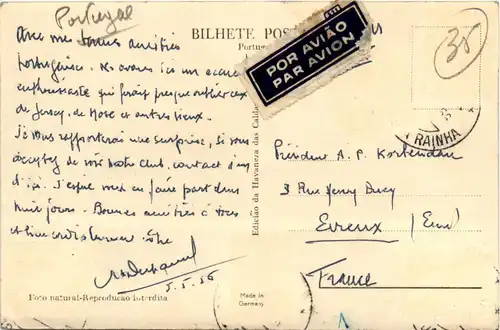 Portugal
BILHETE POSTAL
Portugal
POR AVIÃO
PAR AVION
35
RAINHA
Avec mes bonnes amitiés
portugaises. Nous avons ici un accueil
enthousiaste qui ferait presque oublier ceux
de Jersey, de Hose et autres lieux.
Je vous rapporterai une surprise, si vous
acceptez de voir notre club, contact d'un
d'ici. J'espère vous en faire part dans
huit jours. Bonnes amitiés à tous
et bien cordialement vôtre
5.5.56
Foto natural-Reprodução interdita
Edição da Havaneza das Caldas
Made in
Germany
Président A. P.
3 Rue Henry Ducy
Evreux (Eure)
France